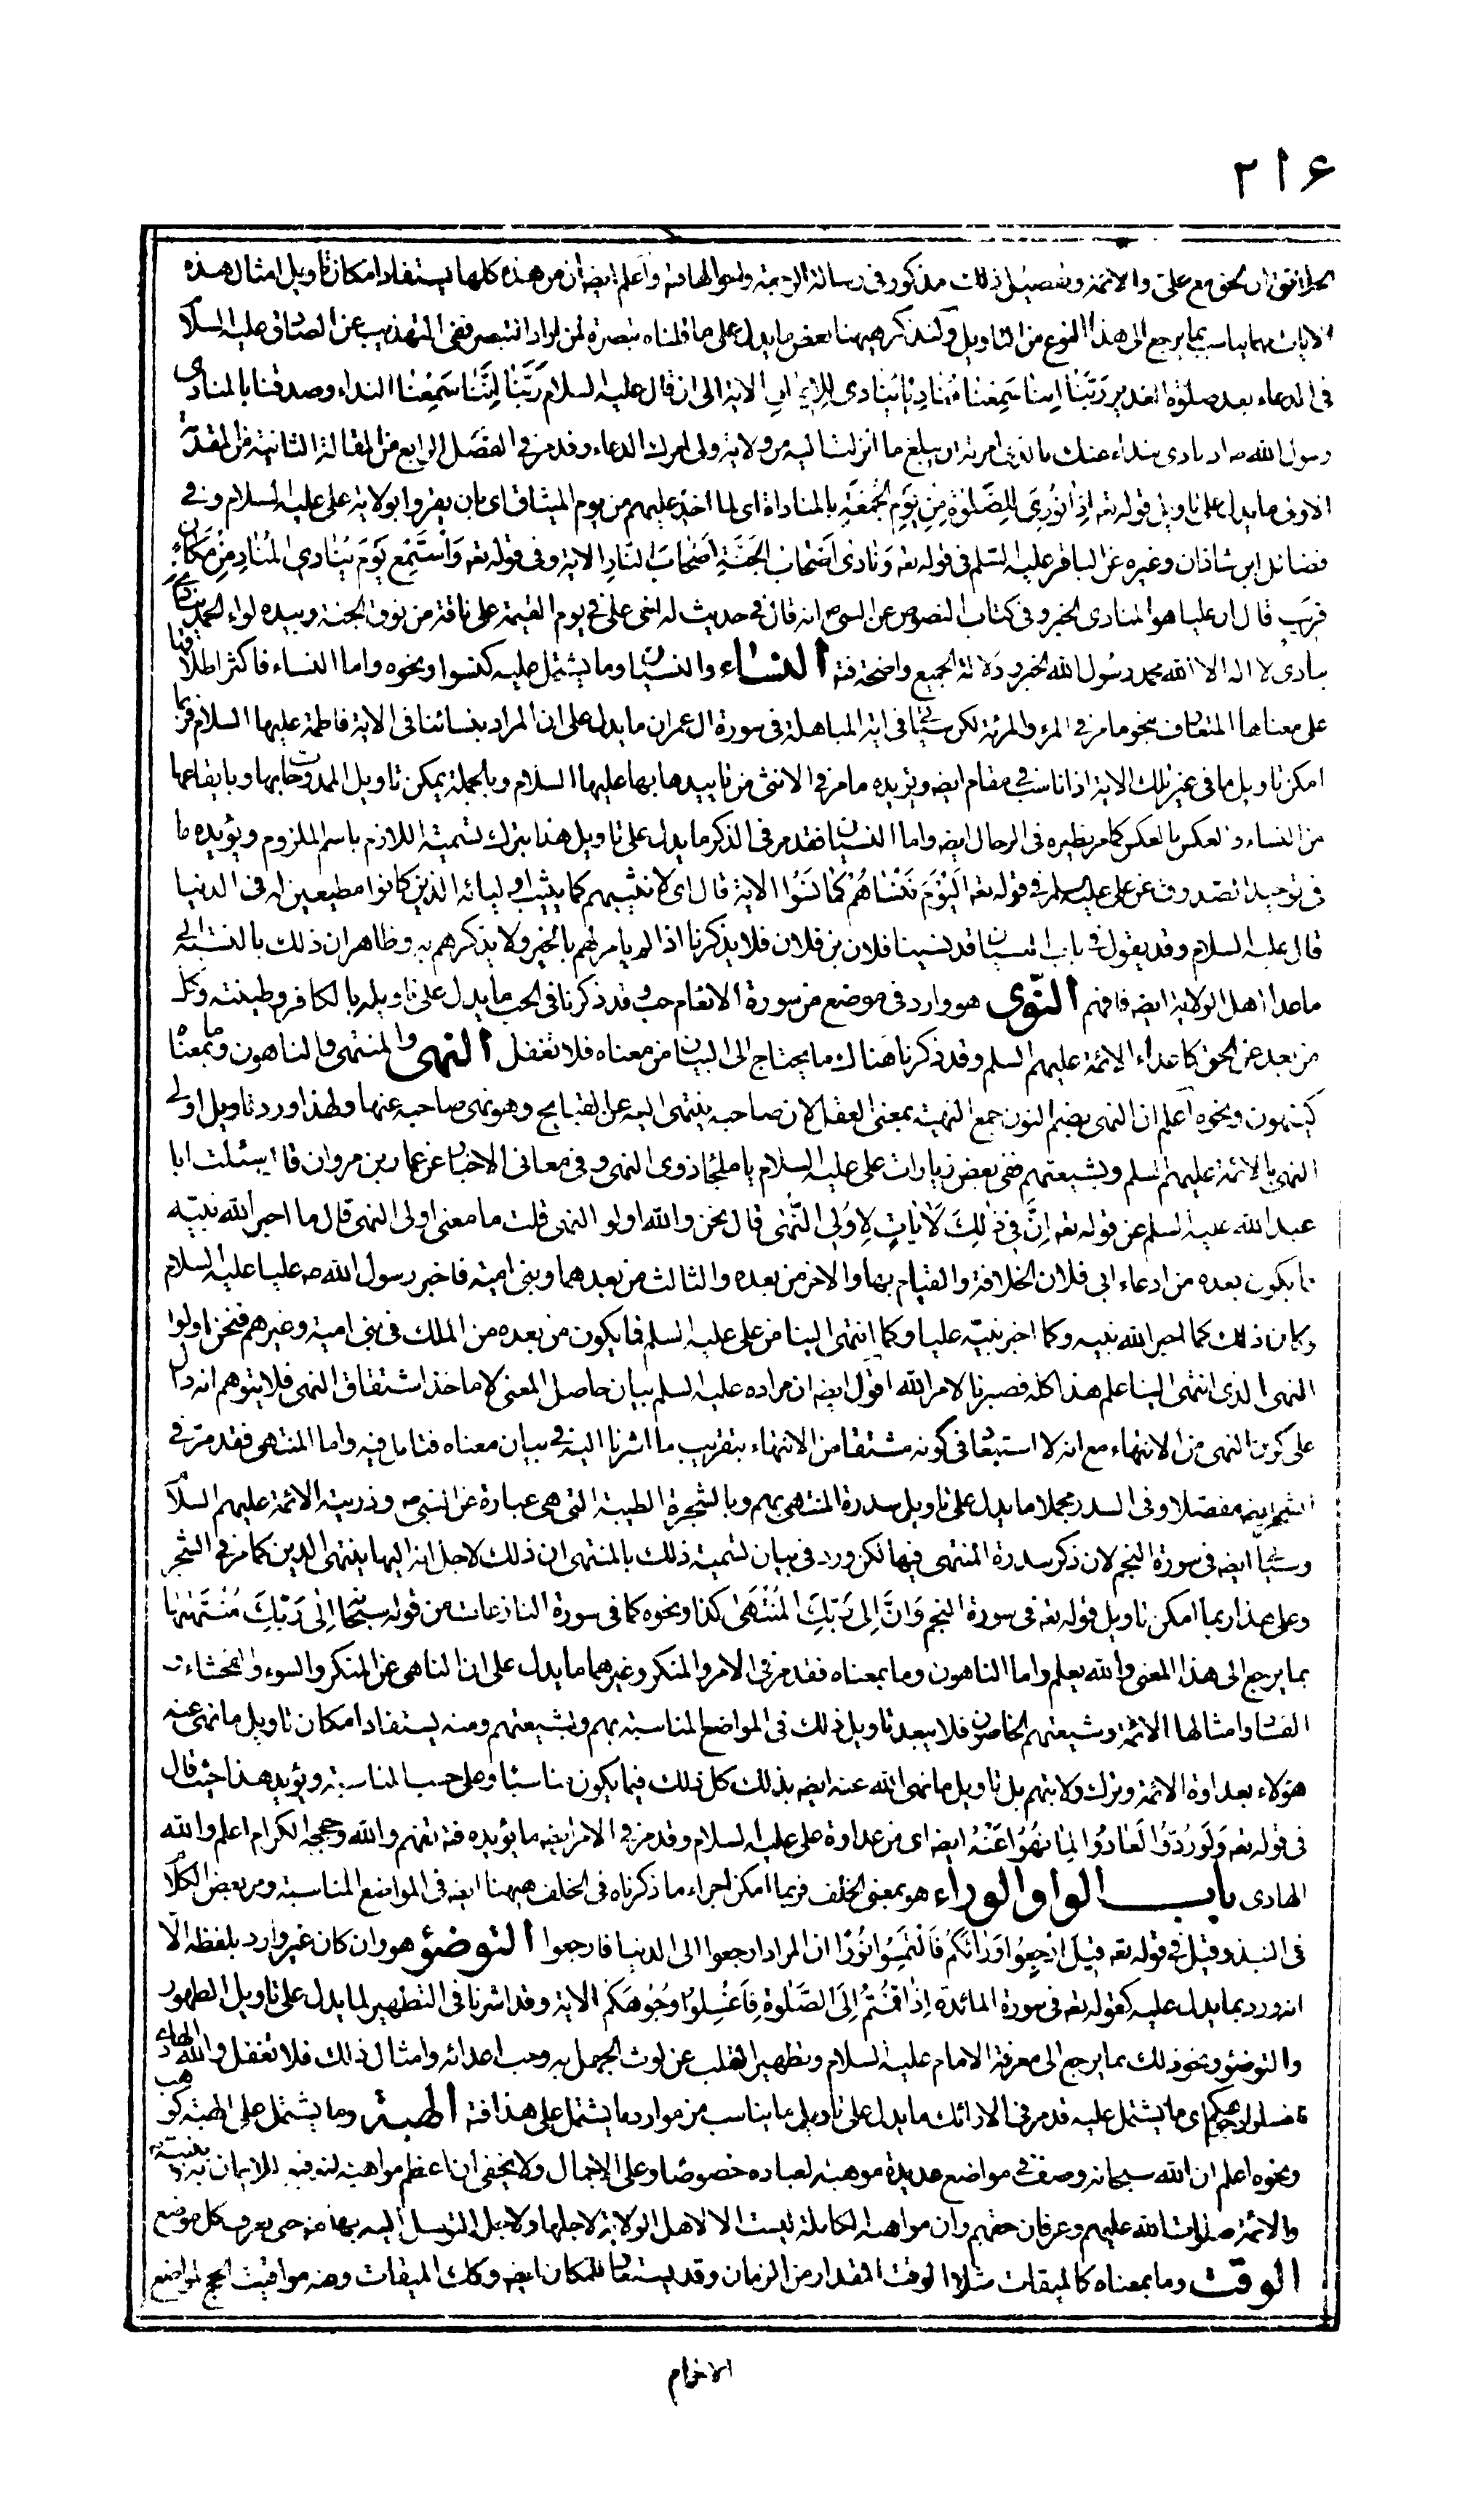 ٢١۶
الحق مع علي والائمة وتفصيل ذلك مذكور في رسالة الرجعة واعلم ايضه ان من هذه كلها يستفاد امكان تاويل امثال هذه
الايات مهما يناسب بما يرجع الى هذا النوع من التاويل ولنذكر هيهنا بعض ما يدل على ما قلناه تبصرة لمن اراد التبصر ففي التهذيب عن الصادق عليه السلام
في الدعاء بعد صلوة الغدير رَبَّنَا اِنَّنَا سَمِعْنَا مُنَادِيًا يُنَادِي لِلْاِيمَانِ الاية الى ان قال عليه السلام رَبَّنَا اِنَّنَا سَمِعْنَا النداء وصدقنا المنادي
رسول الله صه اذ نادى بنداء عنك بالذي امرته ان يبلغ ما انزلت اليه من ولاية ولي امرك الدعاء وقد مر في الفصل الرابع من المقالة الثانية من المقدمة
الاولى ما يدل على تاويل قوله تعه اِذَا نُودِيَ لِلصَّلٰوةِ مِنْ يَوْمِ الْجُمُعَةِ بالمناداة اي لما اخذ عليهم من يوم الميثاق اي بان يقروا بولاية علي عليه السلام وفي
فضائل ابن شاذان وغيره عن الباقر عليه السلم في قوله تعه وَنَادٰى اَصْحَابُ الْجَنَّةِ اَصْحَابَ النَّارِ الاية وفي قوله تعه وَاسْتَمِعْ يَوْمَ يُنَادِي الْمُنَادِ مِنْ مَكَانٍ
قَرِيبٍ قال ان عليا هو المنادي الخبر وفي كتاب النصوص عن النبي ص انه قال في حديث له اخي علي في يوم القيمة على ناقة من نوق الجنة وبيده لواء الحمد
ينادي لا اله الا الله محمد رسول الله الخبر ودلالة الجميع واضحة فته النساء والنسيان وما يشتمل عليه كنسوا ونحوه واما النساء فاكثر اطلاقها
على معناها المتعارف بنحو ما مر في المرء والمرئة لكن سياتي في اية المباهلة في سورة ال عمران ما يدل على ان المراد بنسائنا في الاية فاطمة عليها السلام فربما
امكن تاويل ما في غير تلك الاية اذا ناسب في مقام ايضه ويؤيده ما مر في الانثى من تاييدها بها عليها السلام وبالجملة يمكن تاويل الممدوحات بها وباتباعها
من النساء والعكس بالعكس كما مر نظيره في الرجال ايضه واما النسيان فقد مر في الذكر ما يدل على تاويل هذا بترك تسمية اللازم باسم الملزوم ويؤيده ما
في توحيد الصدوق عن علي عليه السلم في قوله تعه اَلْيَوْمَ نَنْسٰهُمْ كَمَا نَسُوا الاية قال اي لا نثيبهم كما يثيب اوليائه الذين كانوا مطيعين له في الدنيا
قال عليه السلام وقد يقول في باب النسيان قد نسينا فلان بن فلان فلا يذكرنا اذا لم يامر لهم بالخير ولا يذكرهم به وظاهر ان ذلك بالنسبة الى
ما عدا اهل الولاية ايضه فافهم النّوى هو وارد في موضع من سورة الانعام وقد ذكرنا في الحب ما يدل على تاويله بالكافر وطينته وكل
من بعد عن الحق كاعداء الائمة عليهم السلم وقد ذكرنا هناك ما يحتاج الى البيان من معناه فلا تغفل النهى والمنتهى والناهون وما بمعناه
كينهون ونحوه اعلم ان النهى بضم النون جمع النهية بمعنى العقل لان صاحبه ينتهي اليه عن القبايح وهو نهى صاحبه عنها ولهذا ورد تاويل اولي
النهى بالائمة عليهم السلم وبشيعتهم ففي بعض زيارات علي عليه السلام يا ملجأ ذوي النهى وفي معاني الاخبار عن عمار بن مروان قال سئلت ابا
عبد الله عليه السلم عن قوله تعه اِنَّ فِي ذٰلِكَ لَاٰيَاتٍ لِاُولِي النُّهٰى قال نحن والله اولو النهى قلت ما معنى اولي النهى قال ما اخبر الله نبيّه
بما يكون بعده من ادعاء ابي فلان الخلافة والقيام بها والاخر من بعده والثالث من بعدهما وبني امية فاخبر رسول الله صه عليا عليه السلام
وكان ذلك كما اخبر الله نبيه وكما اخبر نبيّه عليا وكما انتهى الينا من علي عليه السلم فيما يكون من بعده من الملك في بني امية وغيرهم فنحن اولوا
النهى الذي انتهى الينا علم هذا كله فصبرنا لامر الله اقول ايضه ان مراده عليه السلم بيان حاصل المعنى لا ماخذ اشتقاق النهى فلا يتوهم انه دال
على كون النهى من الانتهاء مع انه لا استبعاد في كونه مشتقا من الانتهاء بتقريب ما اشرنا اليه في بيان معناه فتامل فيه واما المنتهى فقد مرّ في
الشجر ايضه مفصلا وفي السدر مجملا ما يدل على تاويل سدرة المنتهى بهم وبالشجرة الطيبة التي هي عبارة عن النبي صه وذريته الائمة عليهم السلام
وسيأتي ايضه في سورة النجم لان ذكر سدرة المنتهى فيها لكن ورد في بيان تسمية ذلك بالمنتهى ان ذلك لاجل انه اليها ينتهي الدين كما مر في الشجر
وعلى هذا ربما امكن تاويل قوله تعه في سورة النجم وَاَنَّ اِلٰى رَبِّكَ الْمُنْتَهٰى كذا ونحوه كما في سورة النازعات من قوله سبحانه اِلٰى رَبِّكَ مُنْتَهٰيهَا
بما يرجع الى هذا المعنى والله يعلم واما الناهون وما بمعناه فقد مر في الامر والمنكر وغيرهما ما يدل على ان الناهي عن المنكر والسوء والفحشاء و
الفساد وامثالها الائمة وشيعتهم الخاصون فلا يبعد تاويل ذلك في المواضع المناسبة بهم وبشيعتهم ومنه يستفاد امكان تاويل ما نهى عنه
هؤلاء بعداوة الائمة وترك ولايتهم بل تاويل ما نهى الله عنه ايضه بذلك كل ذلك فيما يكون مناسبا وعلى حسب المناسبة ويؤيد هذا حيث قال
في قوله تعه وَلَوْ رُدُّوا لَعَادُوا لِمَا نُهُوا عَنْهُ ايضه اي من عداوة علي عليه السلام وقد مر في الامر ايضه ما يؤيده فته تفهم والله وحججه الكرام اعلم والله
الهادي باب الواو الوراء هو بمعنى الخلف فربما امكن اجراء ما ذكرناه في الخلف هيهنا ايضه في المواضع المناسبة ومر بعض الكلام
في النبذ وقيل في قوله تعه قِيلَ ارْجِعُوا وَرَاءَكُمْ فَالْتَمِسُوا نُورًا ان المراد ارجعوا الى الدنيا فارجعوا التوضؤ هو وان كان غير وارد بلفظه الّا
انه ورد بما يدل عليه كقوله تعه في سورة المائدة اِذَا قُمْتُمْ اِلَى الصَّلٰوةِ فَاغْسِلُوا وُجُوهَكُمْ الاية وقد اشرنا في التطهير لما يدل على تاويل الطهور
والتوضؤ ونحو ذلك بما يرجع الى معرفة الامام عليه السلام وتطهير القلب عن لوث الجهل به وحب اعدائه وامثال ذلك فلا تغفل والله الهادي
فاغسلوا وجوهكم اي ما يشتمل عليه قد مر في الارائك ما يدل على تاويل ما يناسب من موارد ما يشتمل على هذا فته الهبة وما يشتمل على الهبة كوهب
ونحوه اعلم ان الله سبحانه وصف في مواضع عديدة موهبته لعباده خصوصا وعلى الاجمال ولا يخفى ان اعظم مواهبه لتوفيق الايمان به وبنبيّه
والائمة صلوات الله عليهم وعرفان حقهم وان مواهبه الكاملة ليست الا لاهل الولاية لاجلها ولاجل التوسل اليه بها حتى يعرف كل موضع
الوقت وما بمعناه كالميقات مثلا الوقت المقدار من الزمان وقد يستعار للمكان ايضه وكك الميقات ومنه مواقيت الحج لمواضع
الاحرام